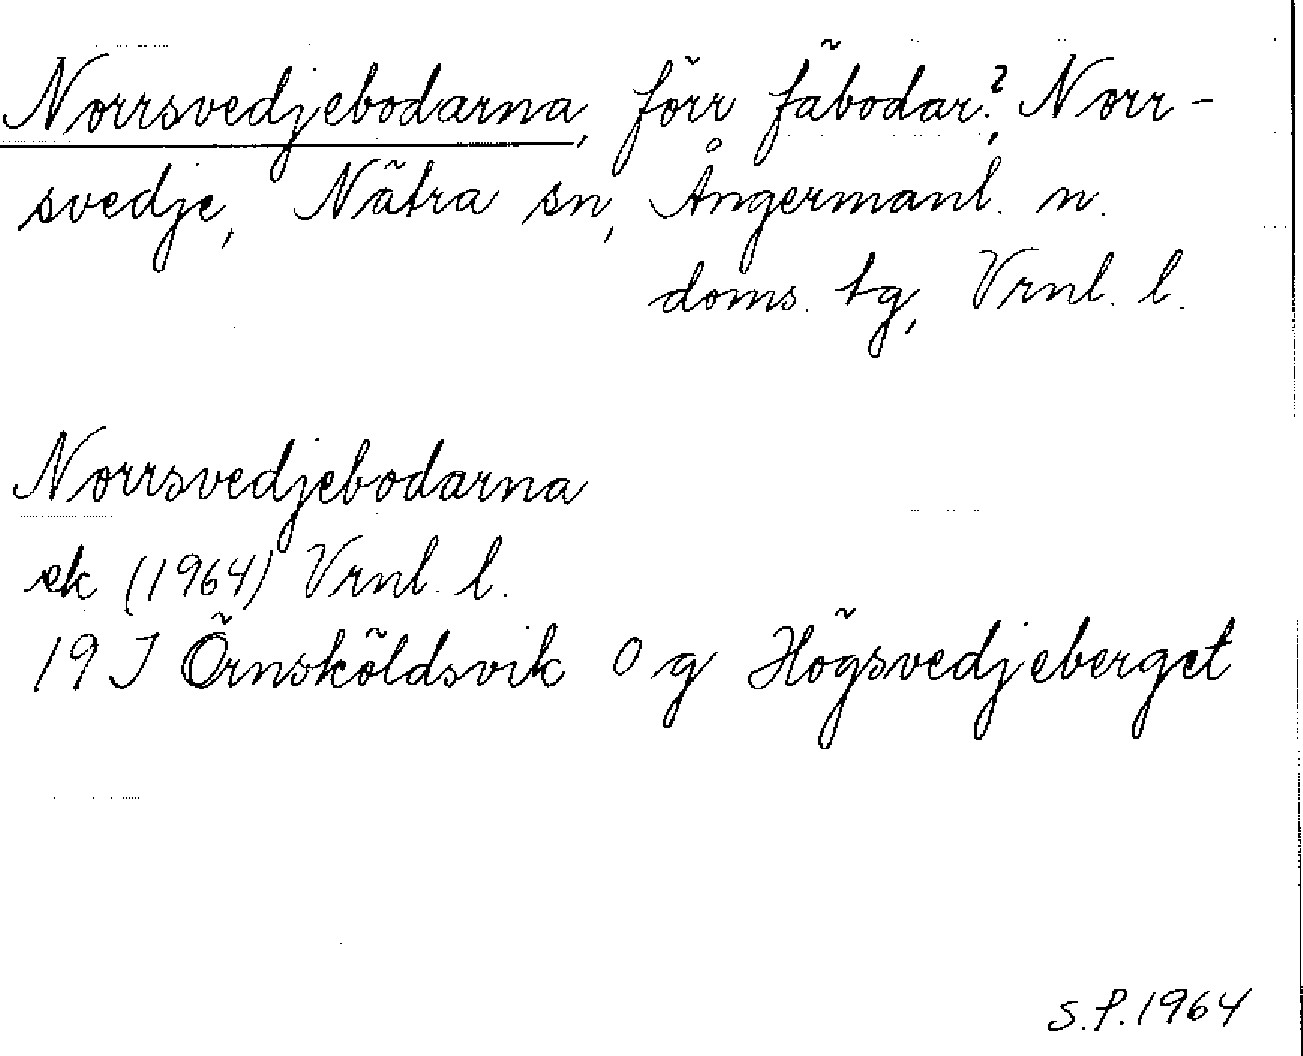 Norrsvedjebodarna, förr fäbodar?, Norr-
svedje, Nätra sn, Ångermanl. n.
doms. tg, Vrnl. l.
Norrsvedjebodarna
ek (1964) Vrnl. l.
19 J Örnsköldsvik O g Högsvedjeberget
S.P. 1964